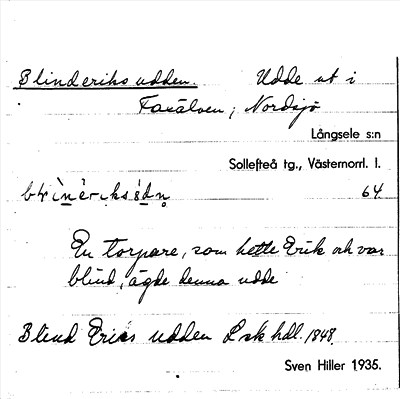 Blinderiksudden. Udde ut i
Faxälven, Nordsjö
Långsele s:n
Sollefteå tg., Västernorrl. l.
64
En torpare, som hette Erik och var
blind, ägde denna udde
Blind Erics udden L sk hdl. 1848
Sven Hiller 1935.